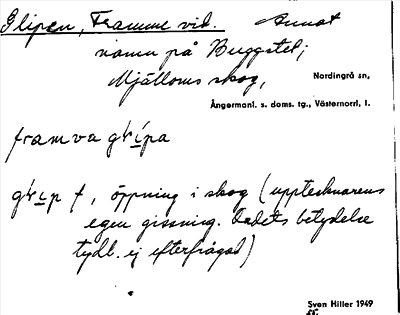 Glipen, Framme vid. Annat
namn på Buggstet;
Mjälloms skog, Nordingrå sn,
Ångermanl. s. doms. tg., Västernorrl. l.
framva
f, öppning i skog (upptecknarens
egen gissning. Ordets betydelse
tydl. ej efterfrågad)
Sven Hiller 1949